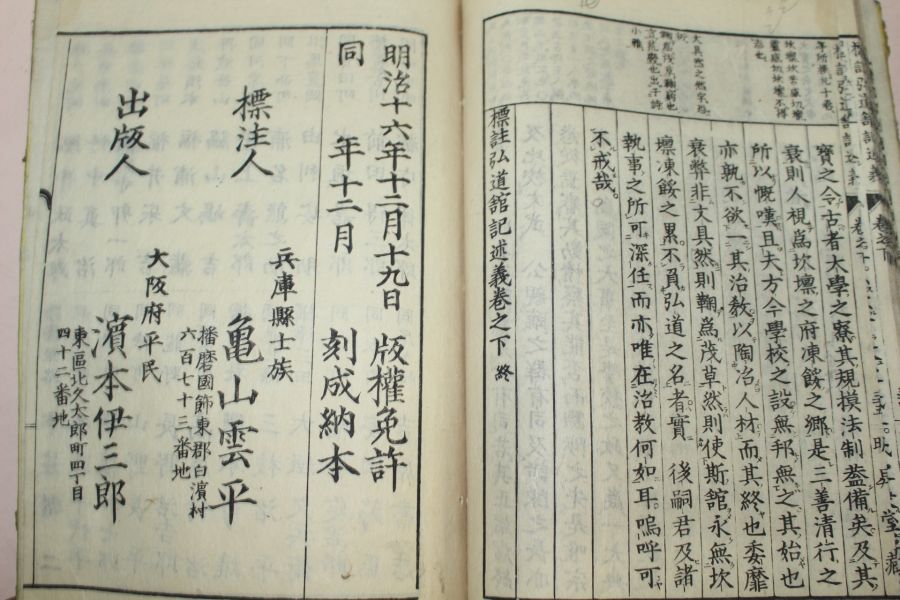 寶之令古者大學之寮其規摸法制益備矣及其
衰則人視爲坎壈之府凍餒之鄉是三善清行之
所以慨嘆且夫方今學校之設無邦無之其始也
亦孰不欲一其治教以陶冶人材而其終也委靡
衰弊非文具然則鞠爲茂草然則使斯館永無坎
壈凍餒之累不負弘道之名者實後嗣君及諸
執事之所可深任而亦唯在治教何如耳嗚呼可
不戒哉
標註弘道館記述義卷之下 終
明治十六年十二月十九日 版權免許
同 年十二月 刻成納本
標注人
兵庫縣士族
龜山雲平
播磨國飾東郡白濱村
六百七十三番地
出版人
大阪府平民
濱本伊三郎
東區北久太郎町四丁目
四十二番地